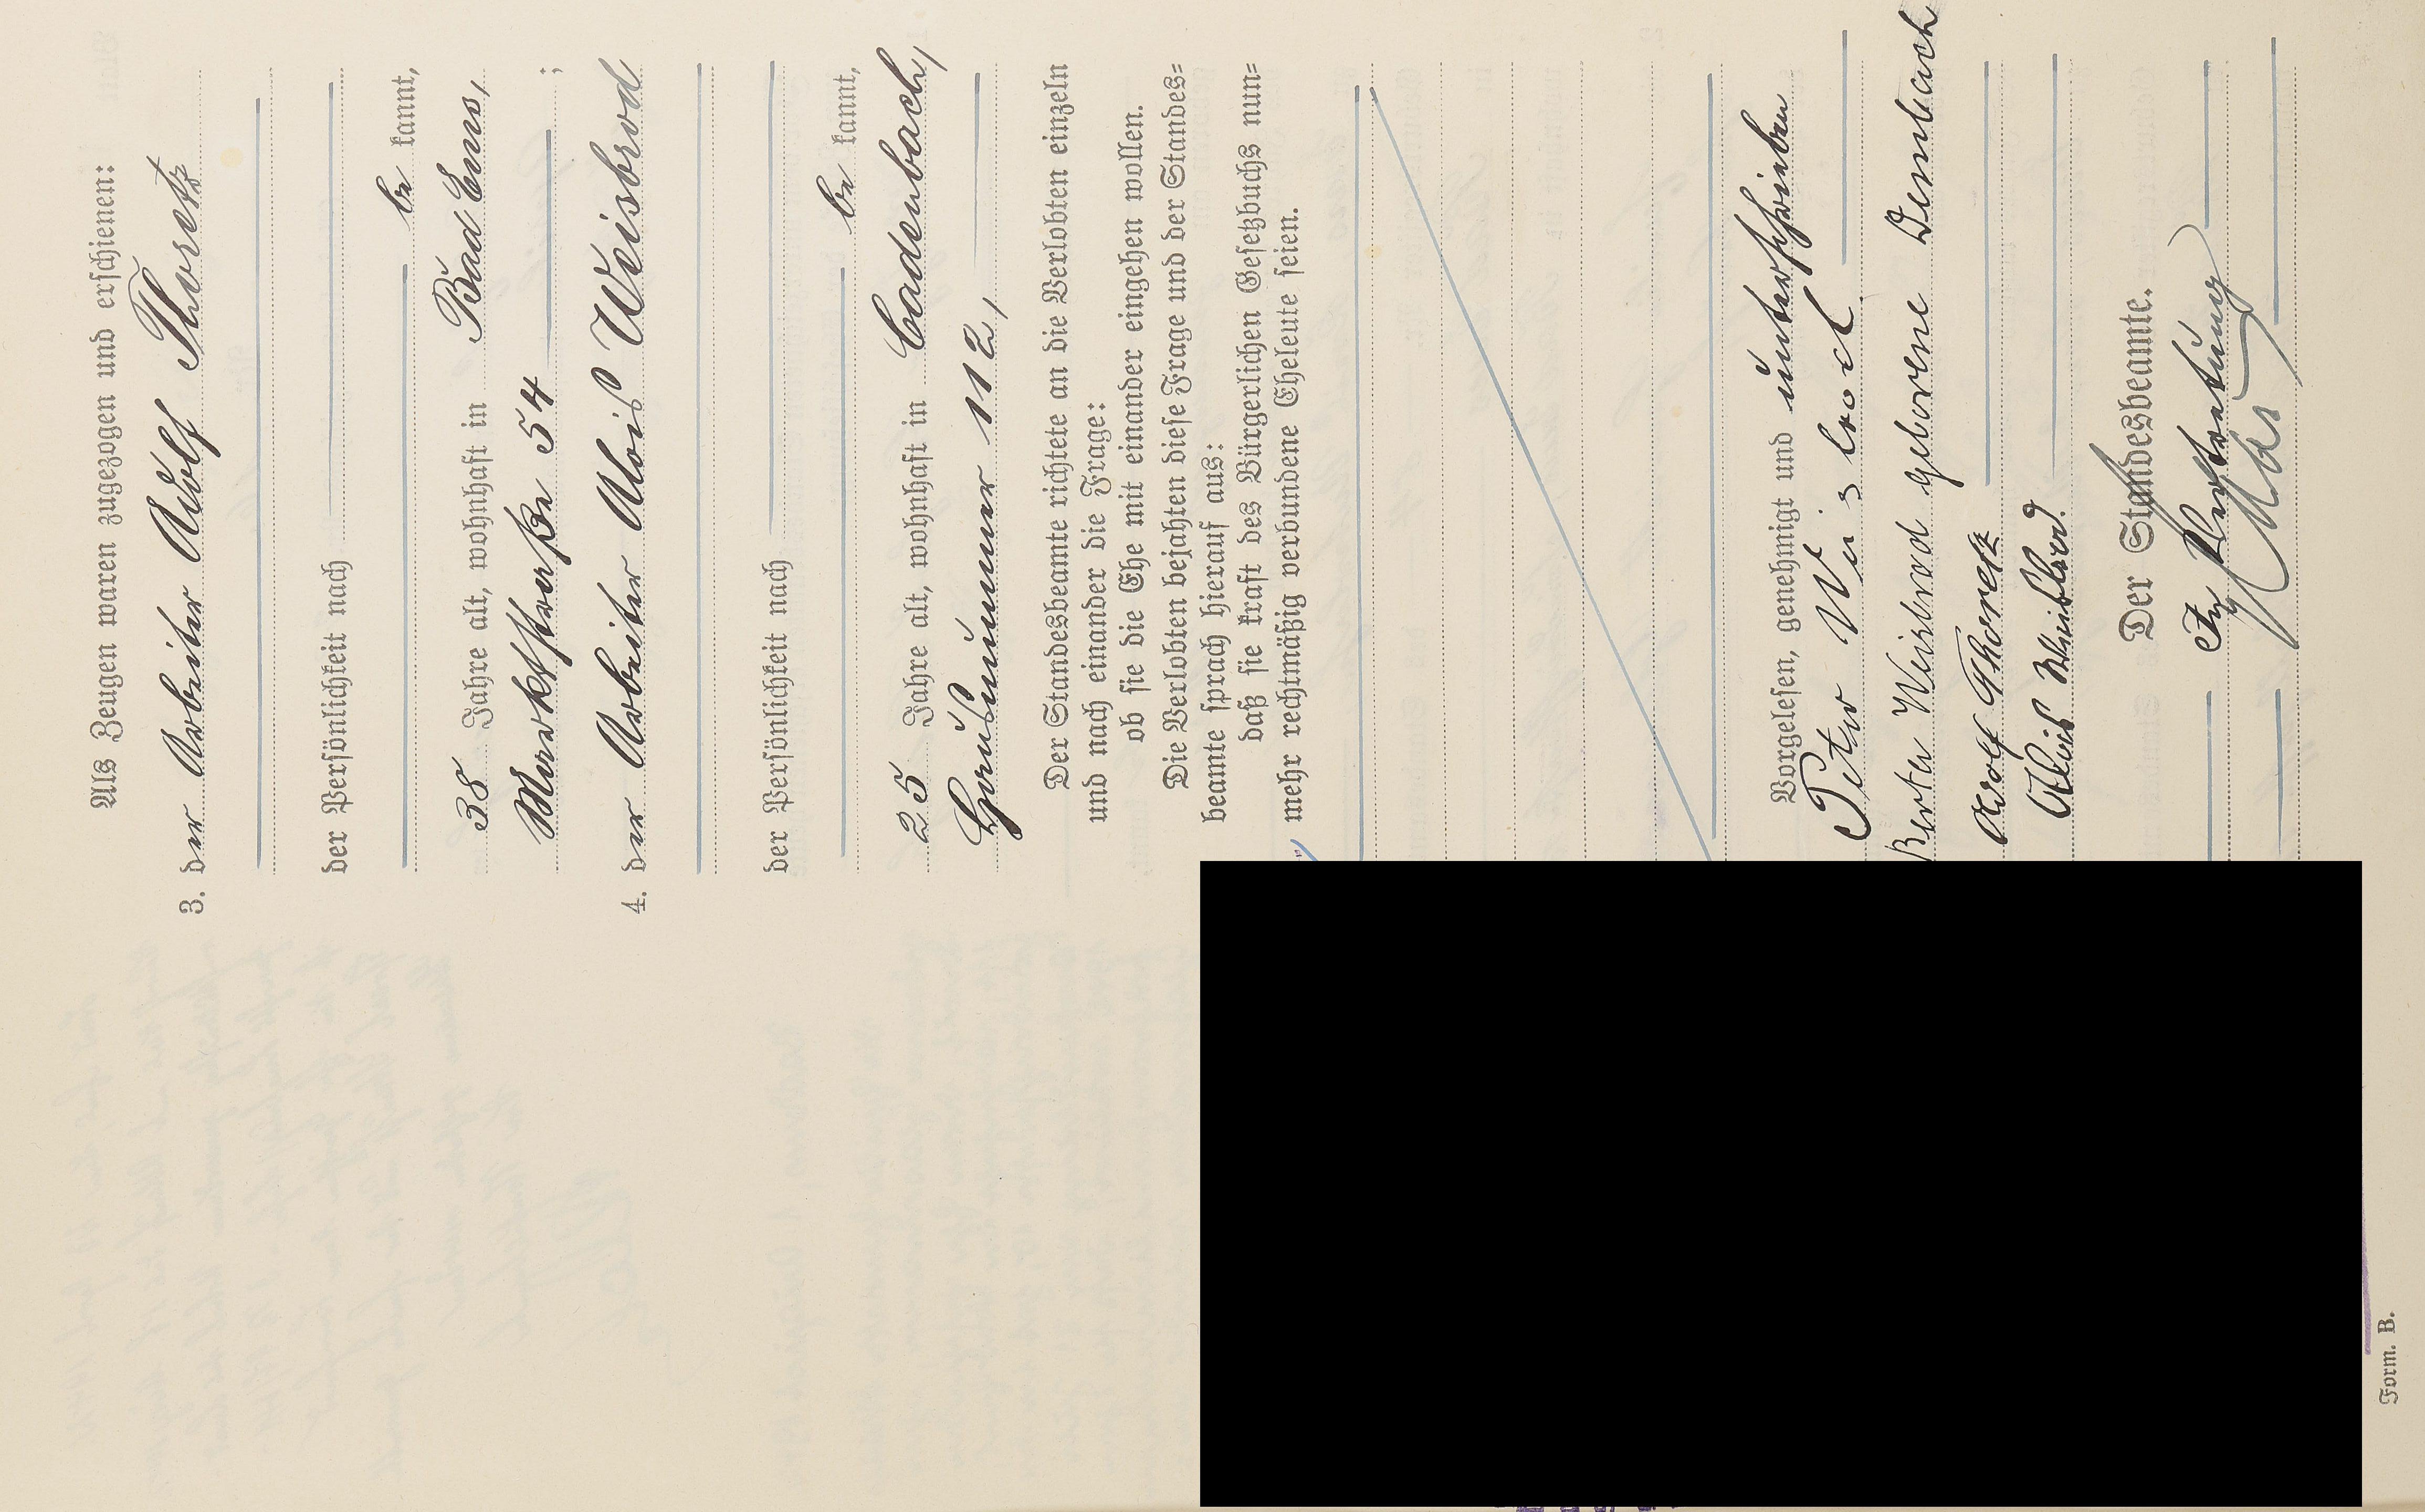 Als Zeugen waren zugezogen und erschienen:
3. der Arbeiter Adolf Thoretz
der Persönlichkeit nach
be kannt,
38 Jahre alt, wohnhaft in Bad Ems,
Marktstraße 54 ;
4. der Arbeiter Alois Weisbrod
der Persönlichkeit nach
be kannt,
25 Jahre alt, wohnhaft in Cadenbach,
Hausnummer 112,
Der Standesbeamte richtete an die Verlobten einzeln
und nach einander die Frage:
ob sie die Ehe mit einander eingehen wollen.
Die Verlobten bejahten diese Frage und der Standes=
beamte sprach hierauf aus:
daß sie kraft des Bürgerlichen Gesetzbuchs nun=
mehr rechtmäßig verbundene Eheleute seien.
Vorgelesen, genehmigt und unterschrieben
Peter Weisbrod
Berta Weisbrod geborene Dembach
Adolf Thoretz
Alois Weisbrod.
Der Standesbeamte.
In Vertretung
Form. B.